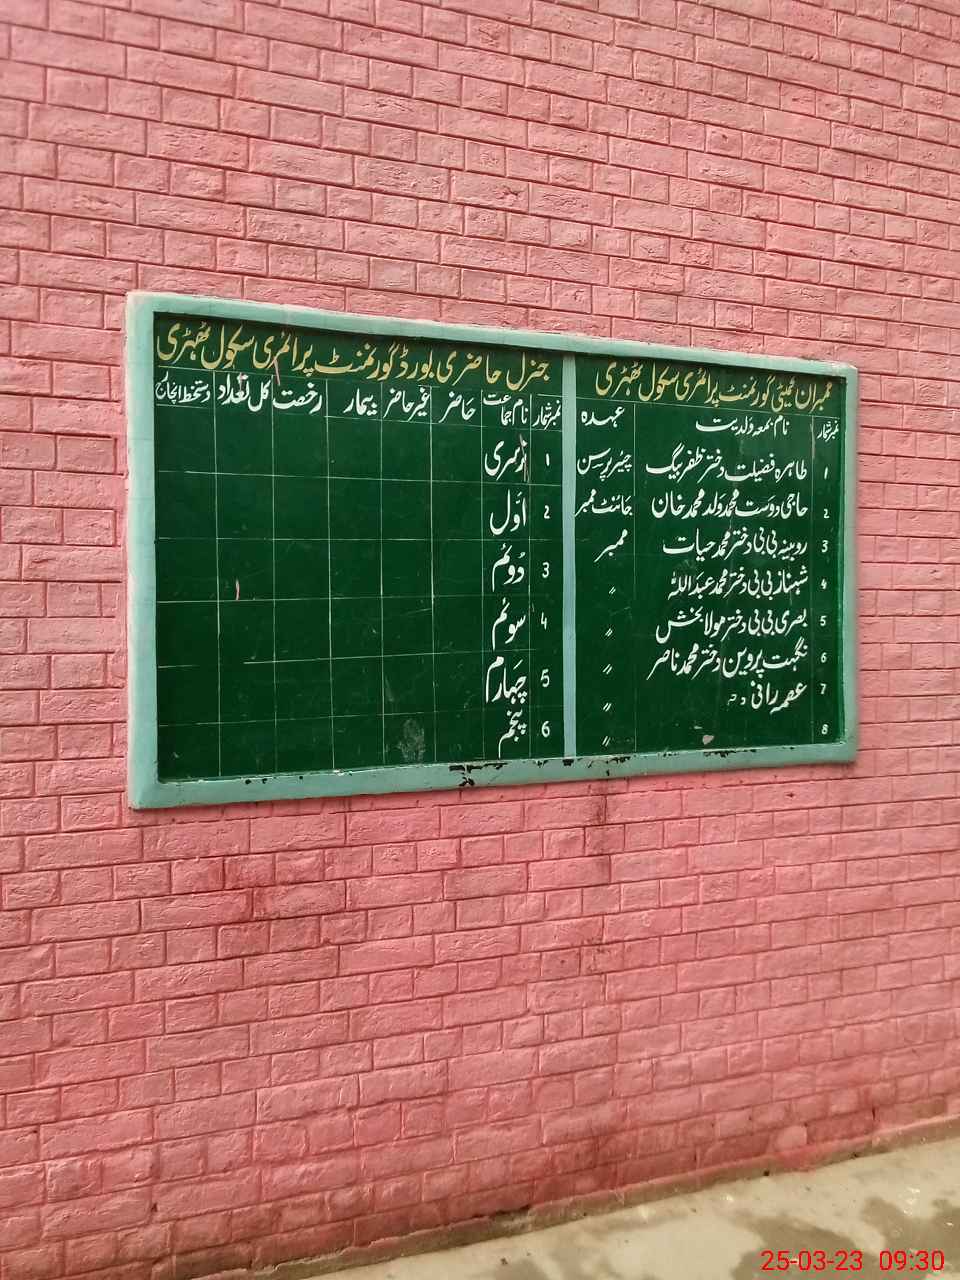 ممبران کمیٹی گورنمنٹ پرائمری سکول بھٹری
نمبر شمار نام بمعہ ولدیت عہدہ
1 طاہرہ فضیلت دختر ظفر بیگ چیئر پرسن
2 حاجی دوست محمد ولد محمد خان جائنٹ ممبر
3 روبینہ بی بی دختر محمد حیات ممبر
4 شہناز بی بی دختر محمد عبداللہ 〃
5 بصری بی بی دختر مولا بخش 〃
6 نگہت پروین دختر محمد ناصر 〃
7 عصمہ رانی 〃
8 〃
جنرل حاضری بورڈ گورنمنٹ پرائمری سکول بھٹری
نمبر شمار نام جماعت حاضر غیر حاضر بیمار رخصت کل تعداد دستخط انچارج
1 نرسری
2 اوّل
3 دوئم
4 سوئم
5 چہارم
6 پنجم
25-03-23 09:30